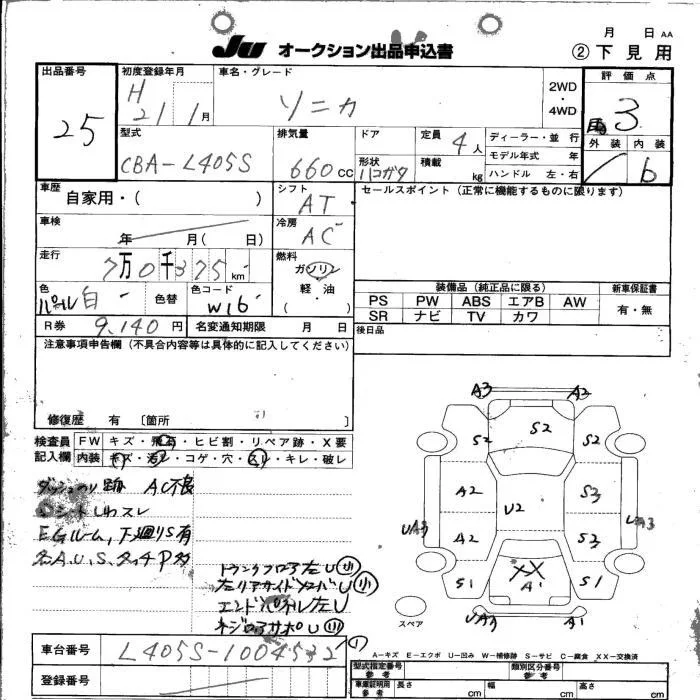 Ju オークション出品申込書
月 日 AA
② 下見用
出品番号
25
初度登録年月
H 21 1月
車名・グレード
ソニカ
2WD・4WD
評価点
3
型式
CBA-L405S
排気量
660cc
ドア
形状
ハコガタ
定員
4人
積載
kg
ディーラー・並 行
モデル年式 年
ハンドル 左・右
外装 内装
6
車歴
自家用・( )
シフト
AT
セールスポイント(正常に機能するものに限ります)
車検
年 月( 日)
冷房
AC
走行
7万0千375km
燃料
ガソリン
軽・油
( )
色
パール白
色替
色コード
W16
装備品(純正品に限る)
新車保証書
PS PW ABS エアB AW
SR ナビ TV カワ
有・無
R券 9,140円
名変通知期限 月 日
後日品
注意事項申告欄(不具合内容等は具体的に記入してください)
修復歴 有 〔箇所 〕
検査員記入欄
FW キズ・飛石・ヒビ割・リペア跡・X要
内装 キズ・汚レ・コゲ・穴・スレ・キレ・破レ
跡 AC不良
シートしわスレ
EGルーム,下廻りS有
各A.U.S.タッチP多
トランクフロア左U小
左リアサイドメンバーU小
エンドパネル左U
A3 A3
S2 S2 S2
A2 S3
U2
UA3 UA3
A2 S3
S1 XX A1 S1
UA3 A1
スペア
A-キズ E-エクボ U-凹み W-補修跡 S-サビ C-腐食 XX-交換済
車台番号
L405S-1004532
登録番号
型式指定番号
参考
類別区分番号
参考
車庫証明用
参考
長さ cm
幅 cm
高さ cm